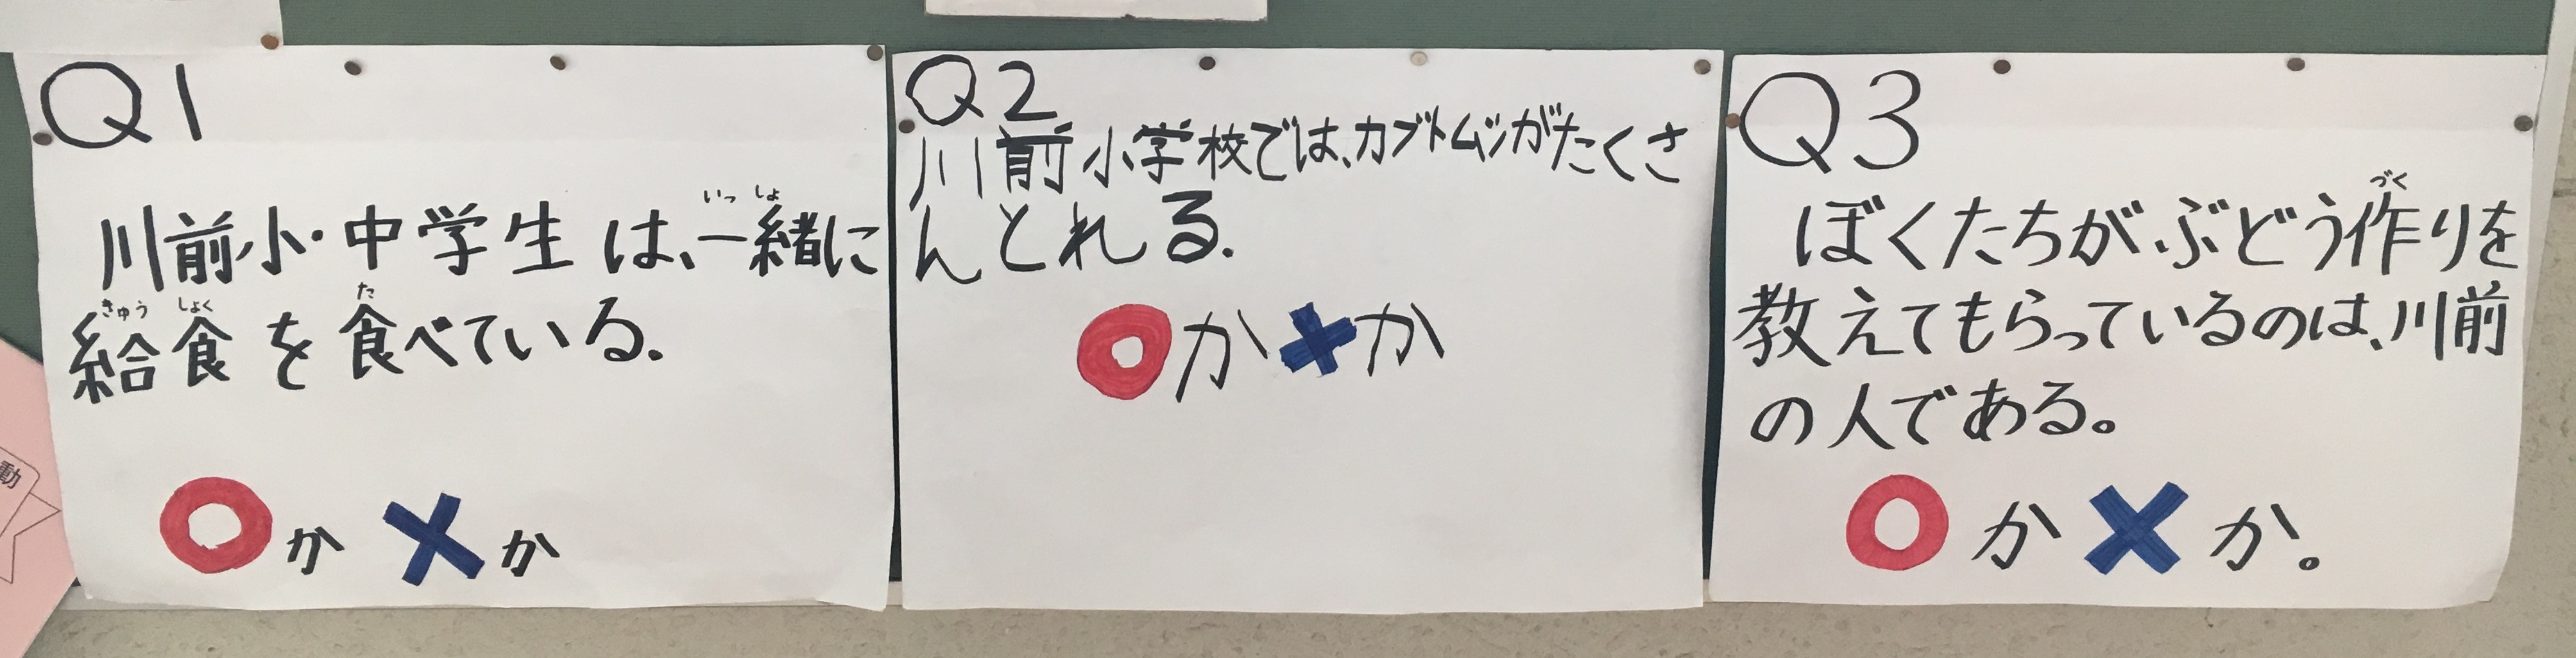 Q1
川前小・中学生は、一緒に
給食を食べている.
○か×か
Q2
川前小学校では、カブトムシがたくさ
んとれる.
○か×か
Q3
ぼくたちがぶどう作りを
教えてもらっているのは、川前
の人である。
○か×か。
動